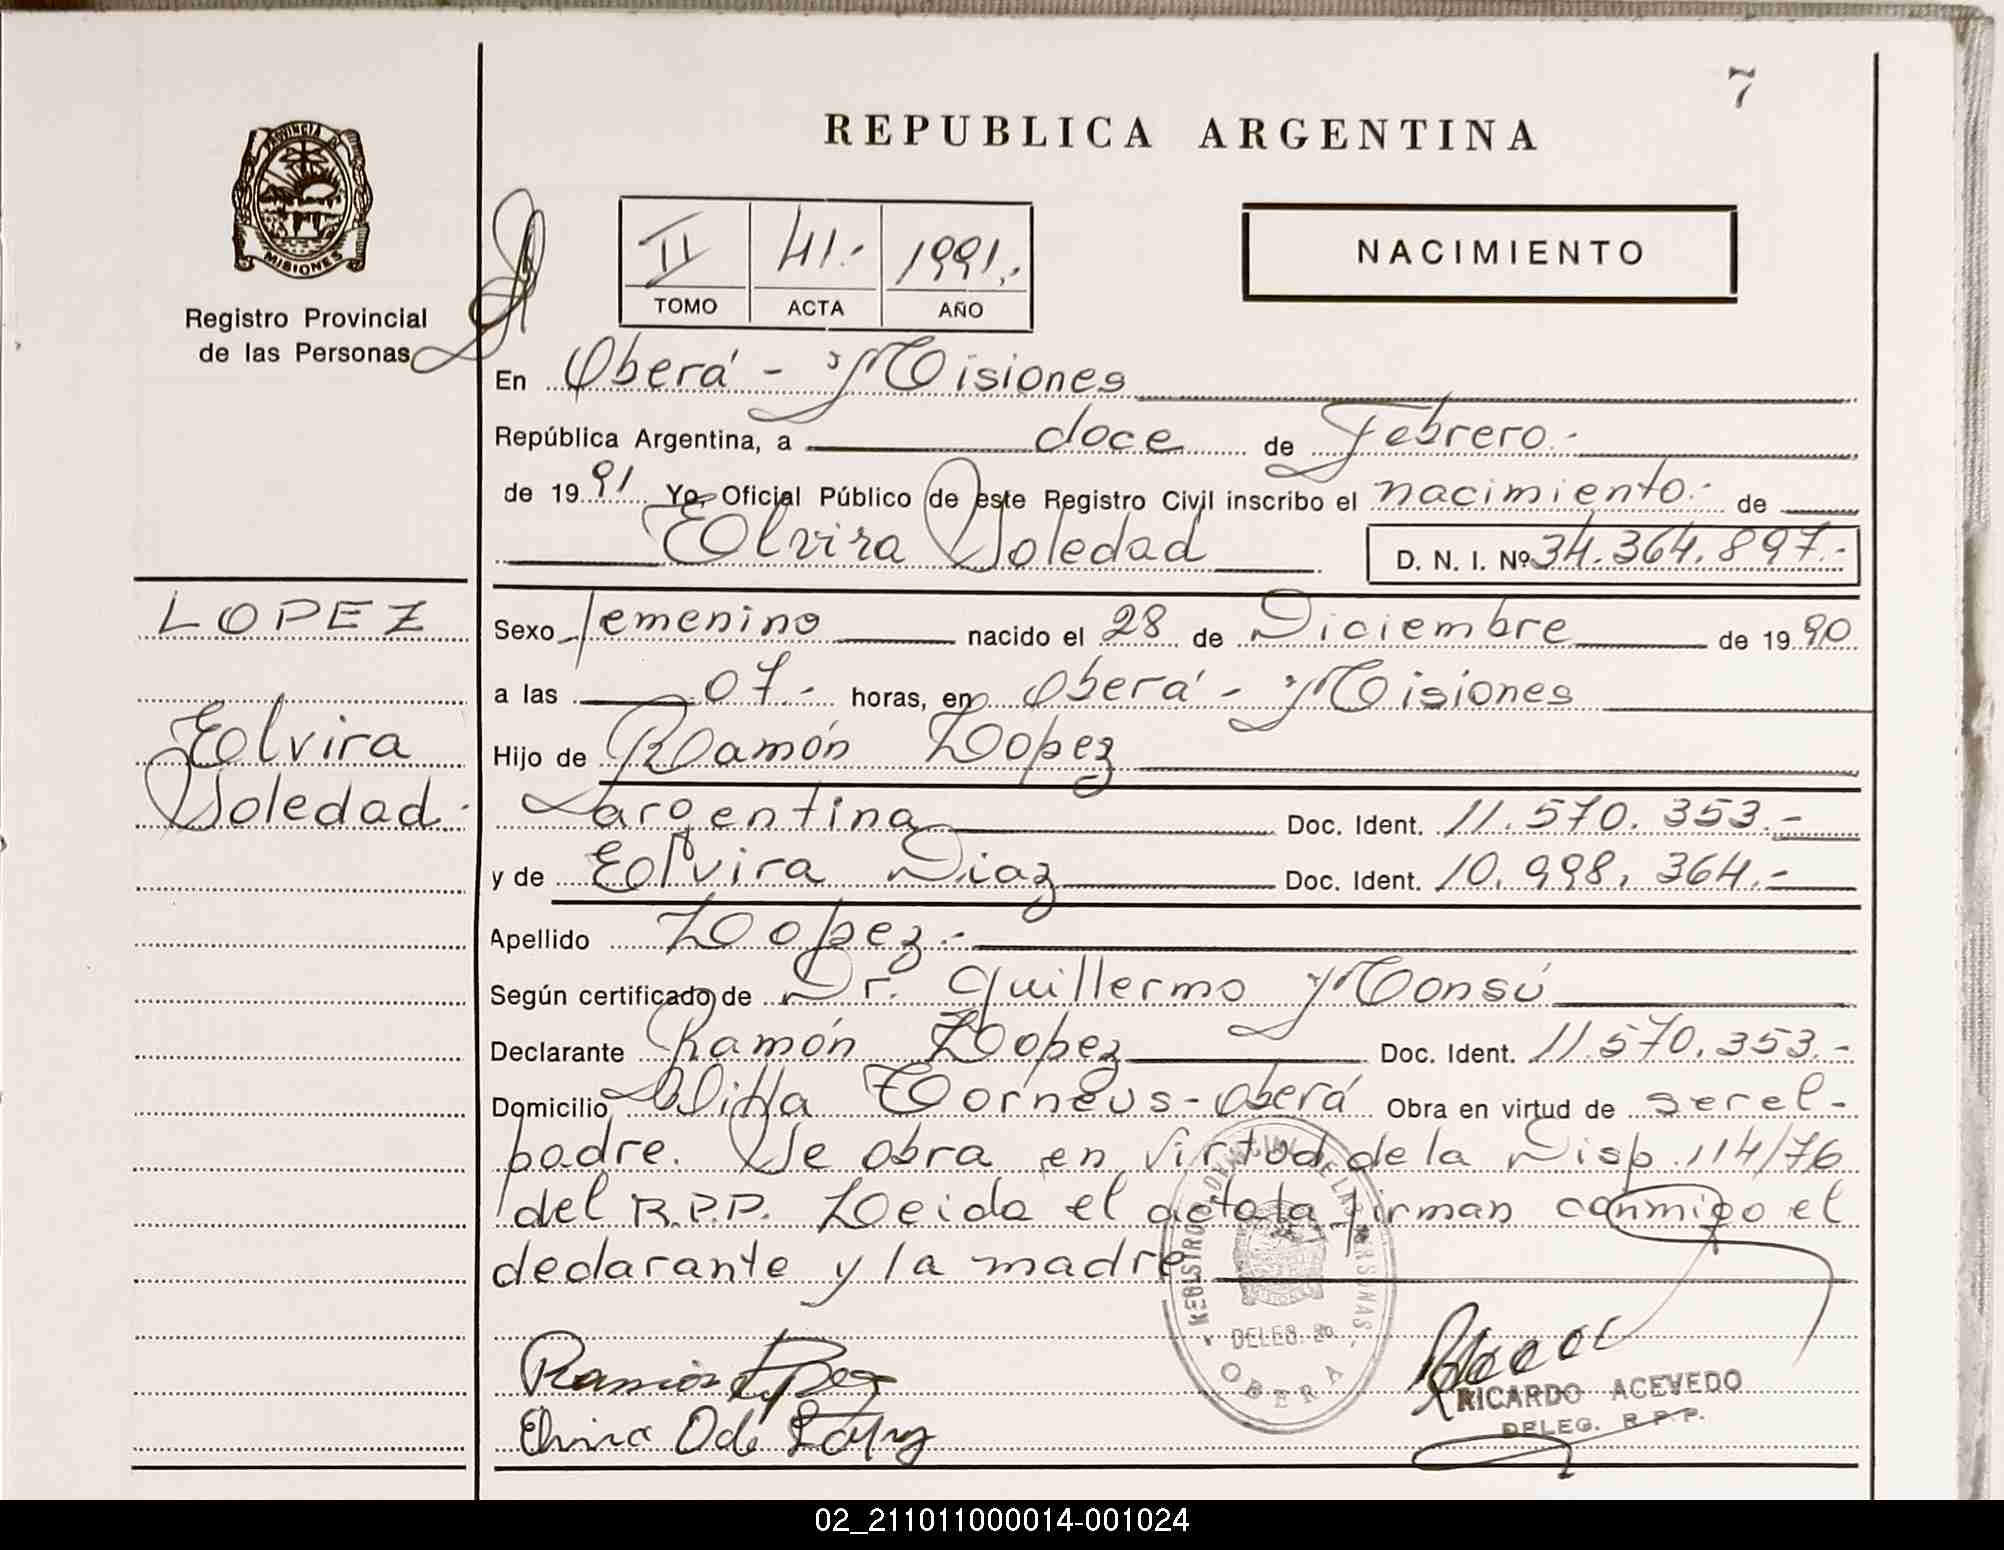 7
REPUBLICA ARGENTINA
PROVINCIA DE
MISIONES
Registro Provincial
de las Personas
II 41.- 1991.-
TOMO ACTA AÑO
NACIMIENTO
En Oberá - Misiones
República Argentina, a doce de Febrero.-
de 1991 Yo, Oficial Público de este Registro Civil inscribo el nacimiento.- de
Elvira Soledad D. N. I. Nº 34.364.897.-
LOPEZ
Elvira
Soledad.
Sexo femenino nacido el 28 de Diciembre de 1990
a las 07.- horas, en Oberá - Misiones
Hijo de Ramón Lopez
argentina Doc. Ident. 11.570.353.-
y de Elvira Diaz Doc. Ident. 10.998.364.-
Apellido Lopez.-
Según certificado de Dr. Guillermo Monsú
Declarante Ramón Lopez Doc. Ident. 11.570.353.-
Domicilio Villa Torneus - Oberá Obra en virtud de ser el-
padre. Se obra en virtud de la Disp. 114/76
del R.P.P. Leida el acta la firman conmigo el
declarante y la madre
REGISTRO PERSONAS
DELEG. 2a.
OBERA
Ramón Lopez
RICARDO ACEVEDO
DELEG. R.P.P.
Elvira D de Lopez
02_211011000014-001024